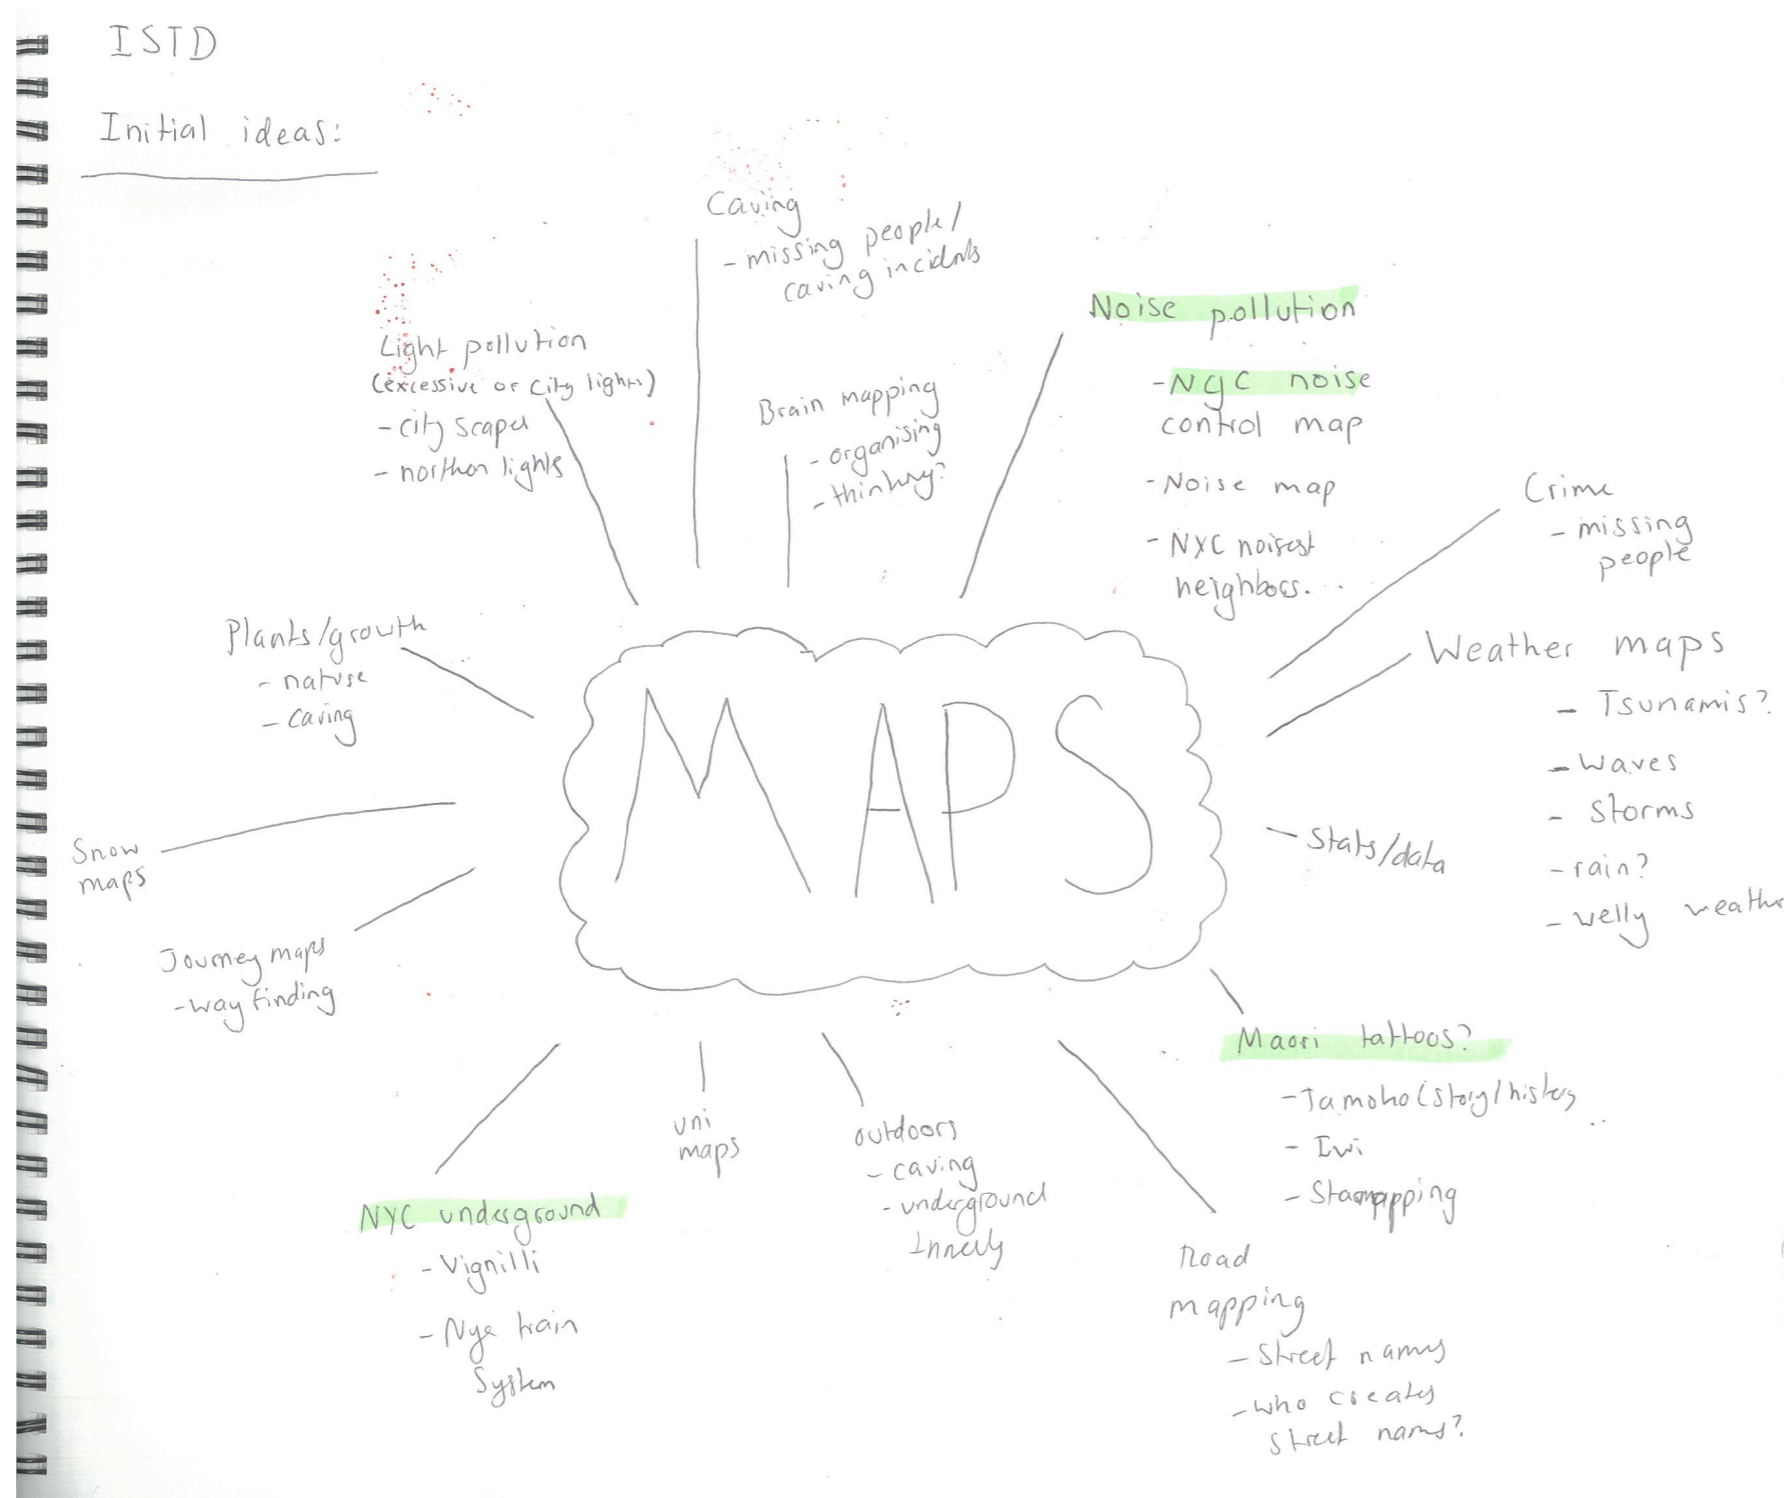 ISTD
Initial ideas:
Caving
- missing people/
caving incidnts
Light pollution
(excessive or city lights)
- city scapes
- northen lights
Brain mapping
- organising
- thinking?
Noise pollution
- NYC noise
control map
- Noise map
- NYC noisest
neighbors...
Crime
- missing
people
Weather maps
- Tsunamis?
- waves
- storms
- rain?
- welly weather
Plants/growth
- nature
- caving
MAPS
Stats/data
Snow
maps
Journey maps
- way finding
Maori tattoos?
- Tamoko (story/history
- Iwi
- Starmapping
NYC underground
- Vignilli
- Nyc train
System
uni
maps
outdoors
- caving
- underground
Road
mapping
- Street names
- who creates
street names?